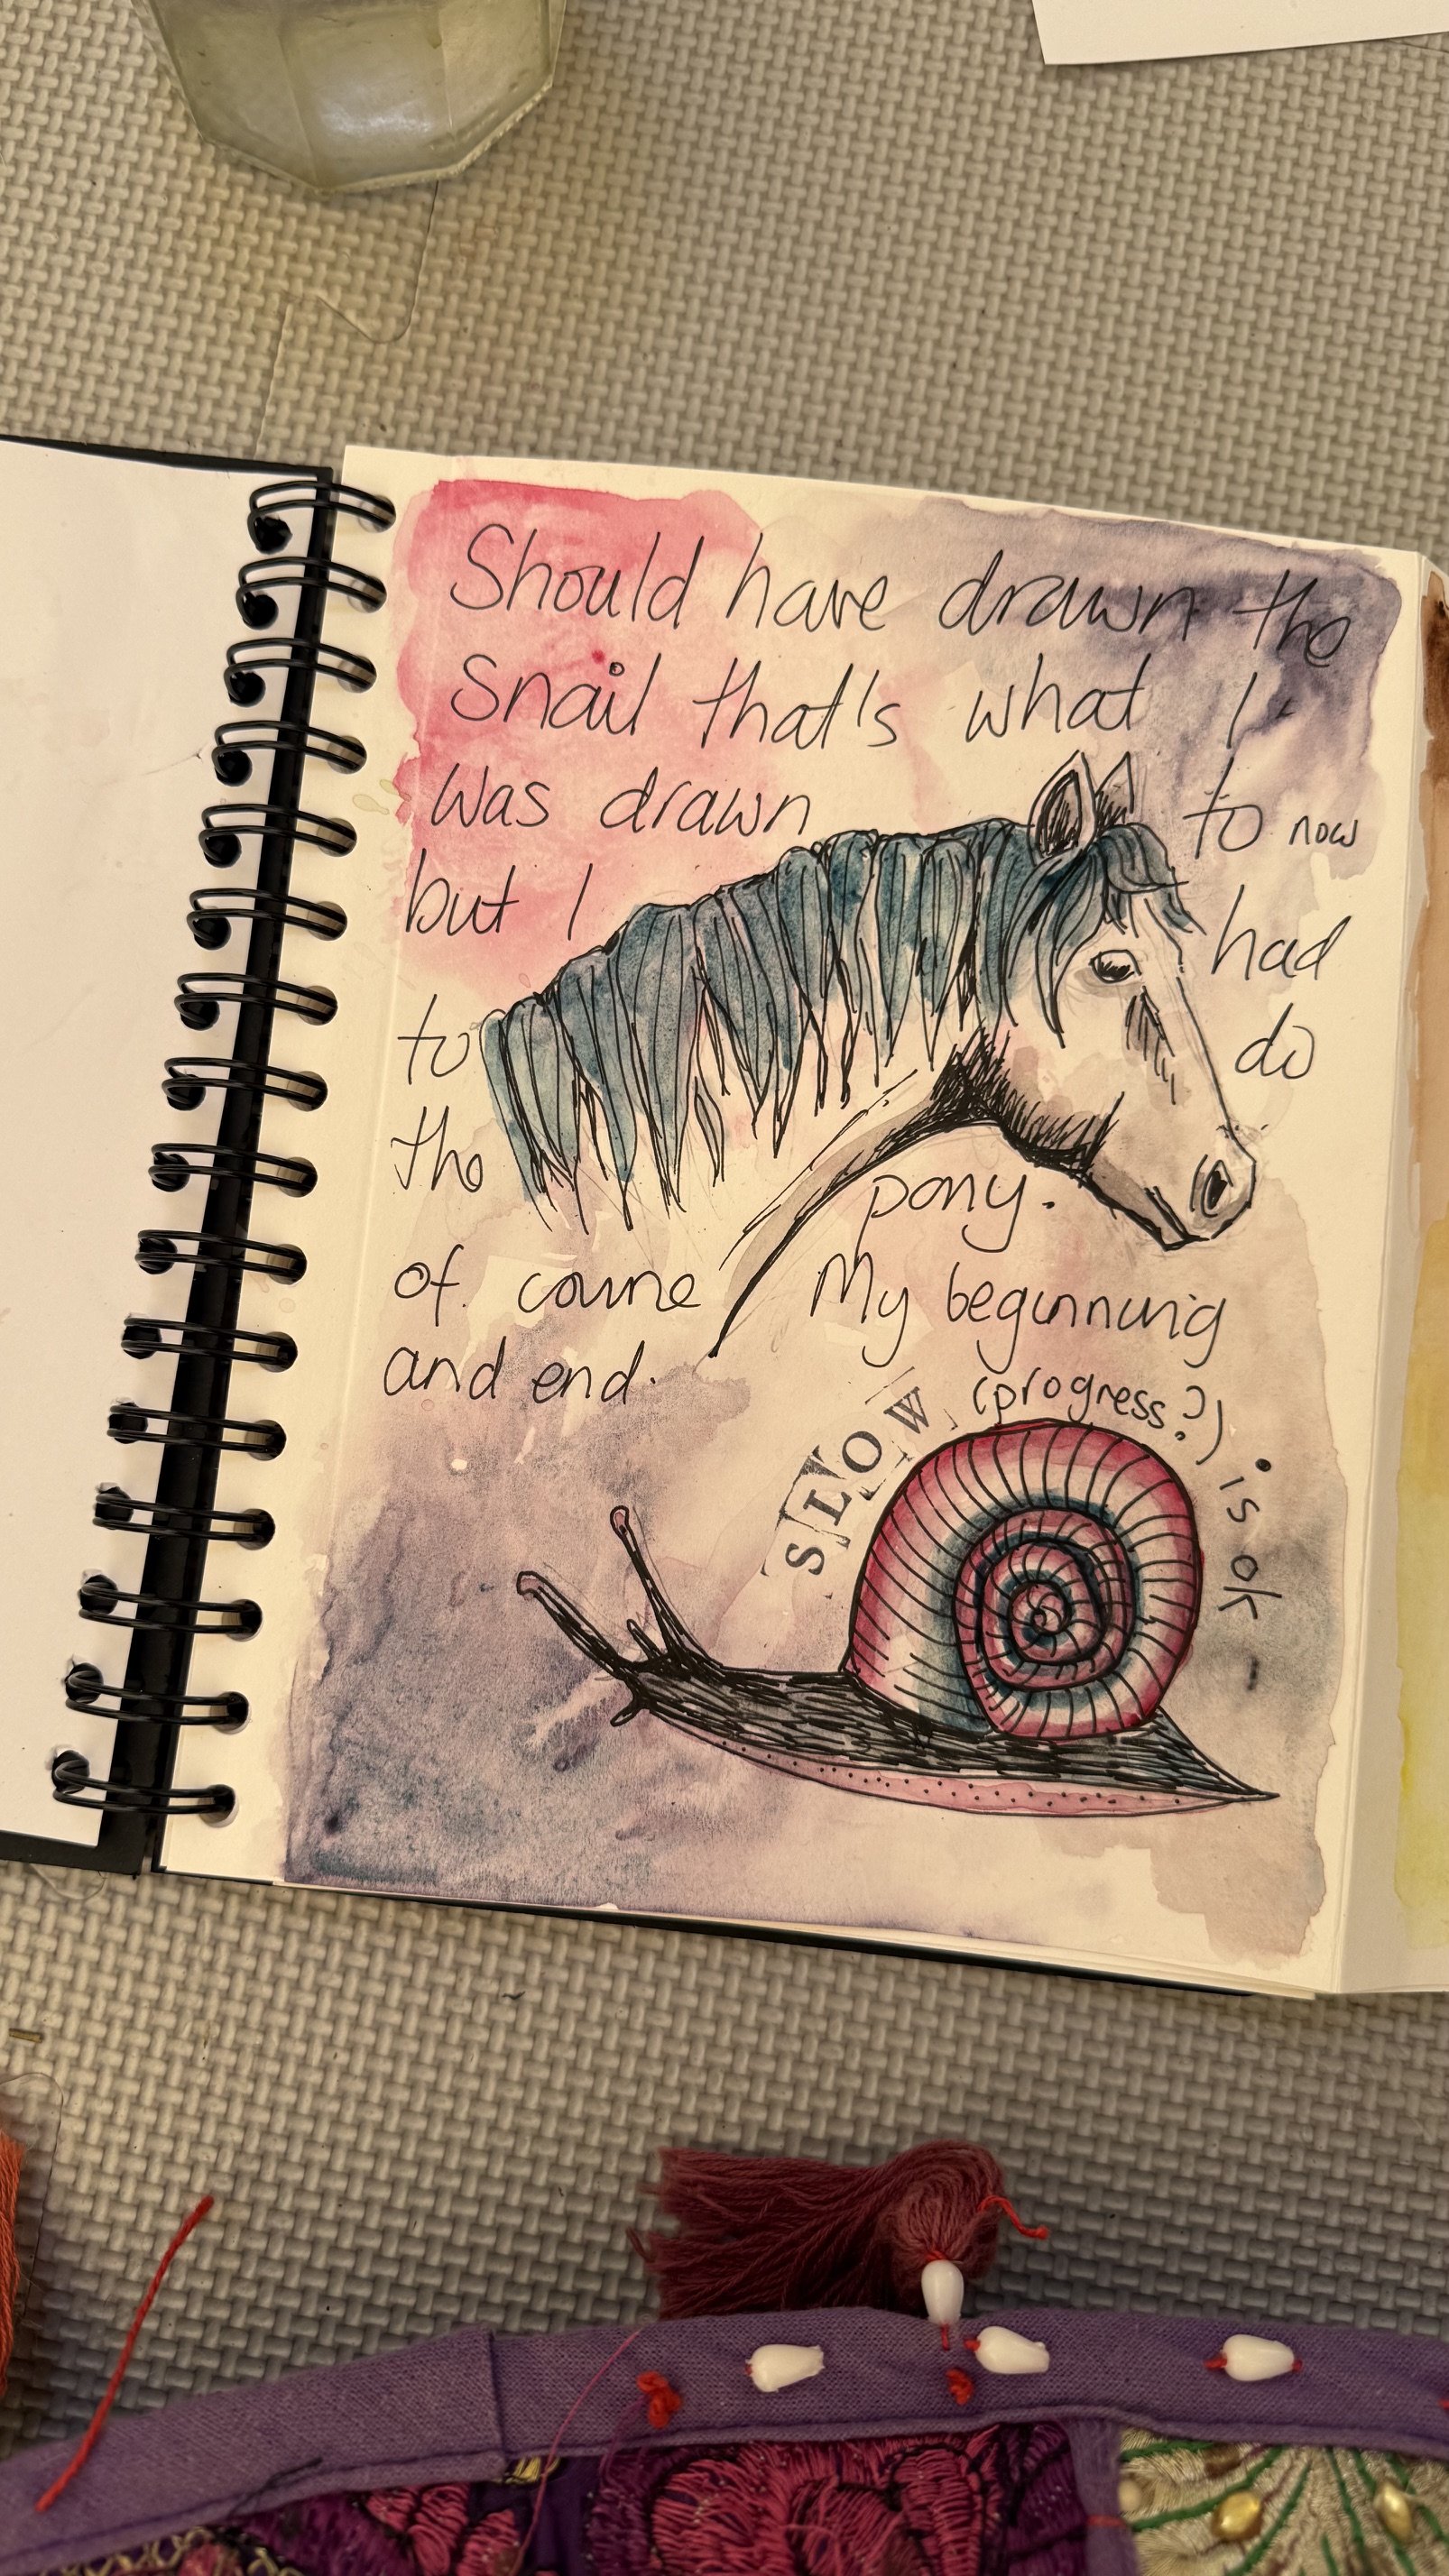 Should have drawn the
Snail that's what I
was drawn to now
but I had
to do
the pony.
of course My beginning
and end.
SLOW (progress?) is ok -